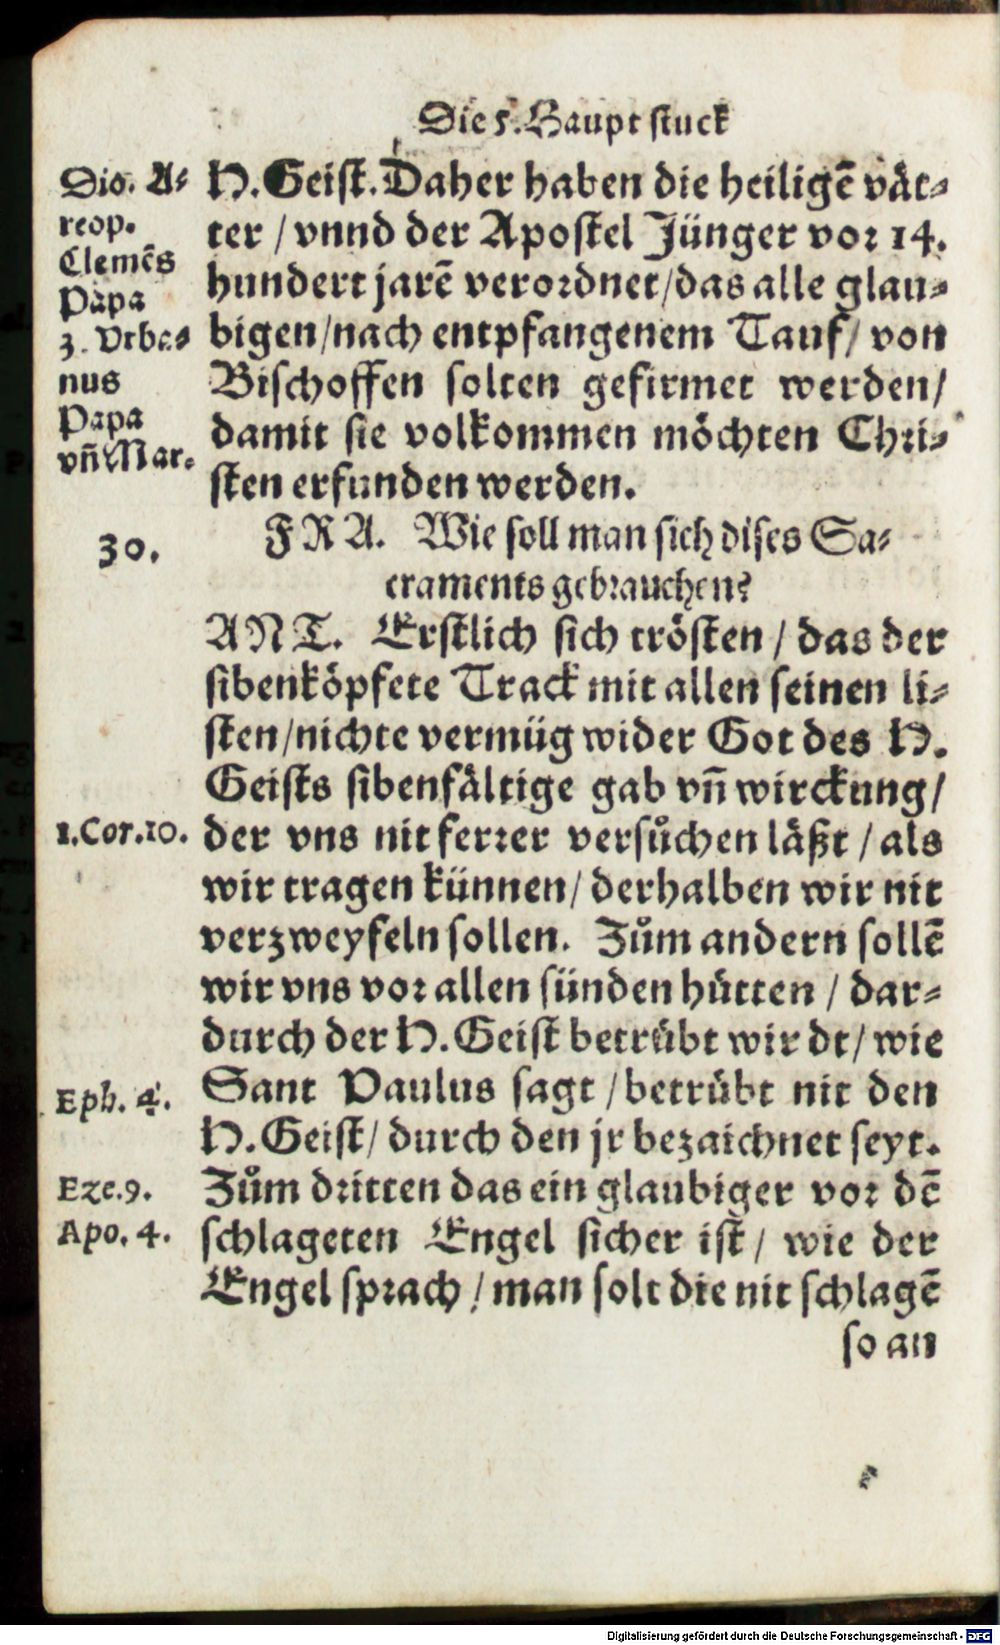 Die 5. Haupt stuck
Dio. A⸗
reop.
Clemēs
Papa
3. Vrba⸗
nus
Papa
vñ Mar.
H. Geist. Daher haben die heiligē vät⸗
ter / vnnd der Apostel Jünger vor 14.
hundert jarē verordnet / das alle glau⸗
bigen / nach entpfangenem Tauf / von
Bischoffen solten gefirmet werden /
damit sie volkommen möchten Chri⸗
sten erfunden werden.
30.
FRA. Wie soll man sich dises Sa⸗
craments gebrauchen?
ANT. Erstlich sich trösten / das der
sibenköpfete Track mit allen seinen li⸗
sten / nichte vermüg wider Got des H.
Geists sibenfältige gab vñ wirckung /
1. Cor. 10.
der vns nit ferrer versůchen läßt / als
wir tragen künnen / derhalben wir nit
verzweyfeln sollen. Zům andern sollē
wir vns vor allen sünden hütten / dar⸗
durch der H. Geist betrübt wirdt / wie
Eph. 4.
Sant Paulus sagt / betrübt nit den
H. Geist / durch den jr bezaichnet seyt.
Eze. 9.
Zům dritten das ein glaubiger vor dē
Apo. 4.
schlageten Engel sicher ist / wie der
Engel sprach / man solt die nit schlagē
so an
Digitalisierung gefördert durch die Deutsche Forschungsgemeinschaft - DFG